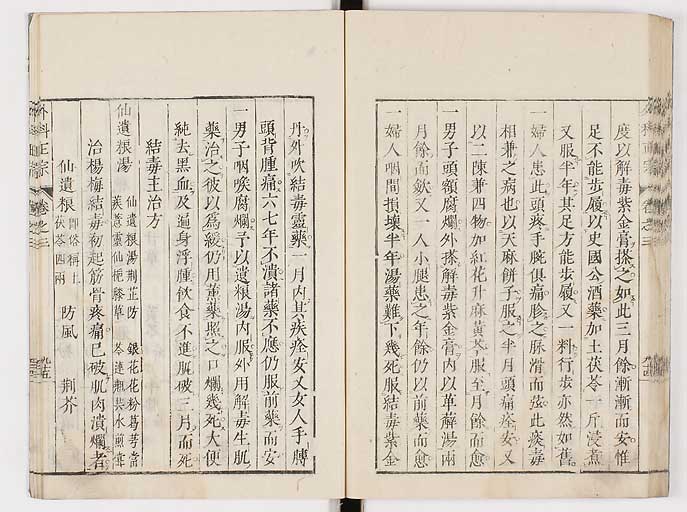 度以解毒紫金膏搽之如此三月餘漸漸而安惟
足不能步履以史國公酒藥加土茯苓一斤浸煮
又服半年其足方能步履又一料行步亦然如舊
一婦人患此頭疼手腕俱痛胗之脉滑而弦此痰毒
相兼之病也以天麻餅子服之半月頭痛痊安又
以二陳兼四物加紅花升麻黄芩服至月餘而愈
一男子頭額腐爛外搽解毒紫金膏內以萆薢湯兩
月餘而歛又一人小腿患之年餘仍以前藥而愈
一婦人咽間損壞半年湯藥難下幾死服結毒紫金
丹外吹結毒靈藥一月內其疾痊安又女人手膊
頭背腫痛六七年不潰諸藥不應仍服前藥而安
一男子咽喉腐爛予以遺根湯內服外用解毒生肌
藥治之彼以爲緩仍用薰藥照之口爛幾死大便
純去黒血及遍身浮腫飲食不進肌破三月而死
結毒主治方
仙遺根湯 仙遺根湯荆芷防 銀花花粉葛芎當
蒺薏靈仙梔膝草 苓連瓶共水煎
治楊梅結毒初起筋骨疼痛已破肌肉潰爛者
仙遺根 即俗稱土茯苓四兩 防風 荆芥
外科正宗 卷之三